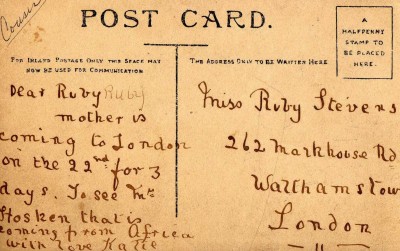 Cousin
POST CARD.
A
HALFPENNY
STAMP TO
BE PLACED
HERE.
FOR INLAND POSTAGE ONLY THIS SPACE MAY
NOW BE USED FOR COMMUNICATION
THE ADDRESS ONLY TO BE WRITTEN HERE
Dear Ruby Ruby
mother is
coming to London
on the 22nd for 3
days. To see Mr
Hosken that is
coming from Africa
with love Katie
Miss Ruby Stevens
262 Markhouse Rd
Walthamstow
London